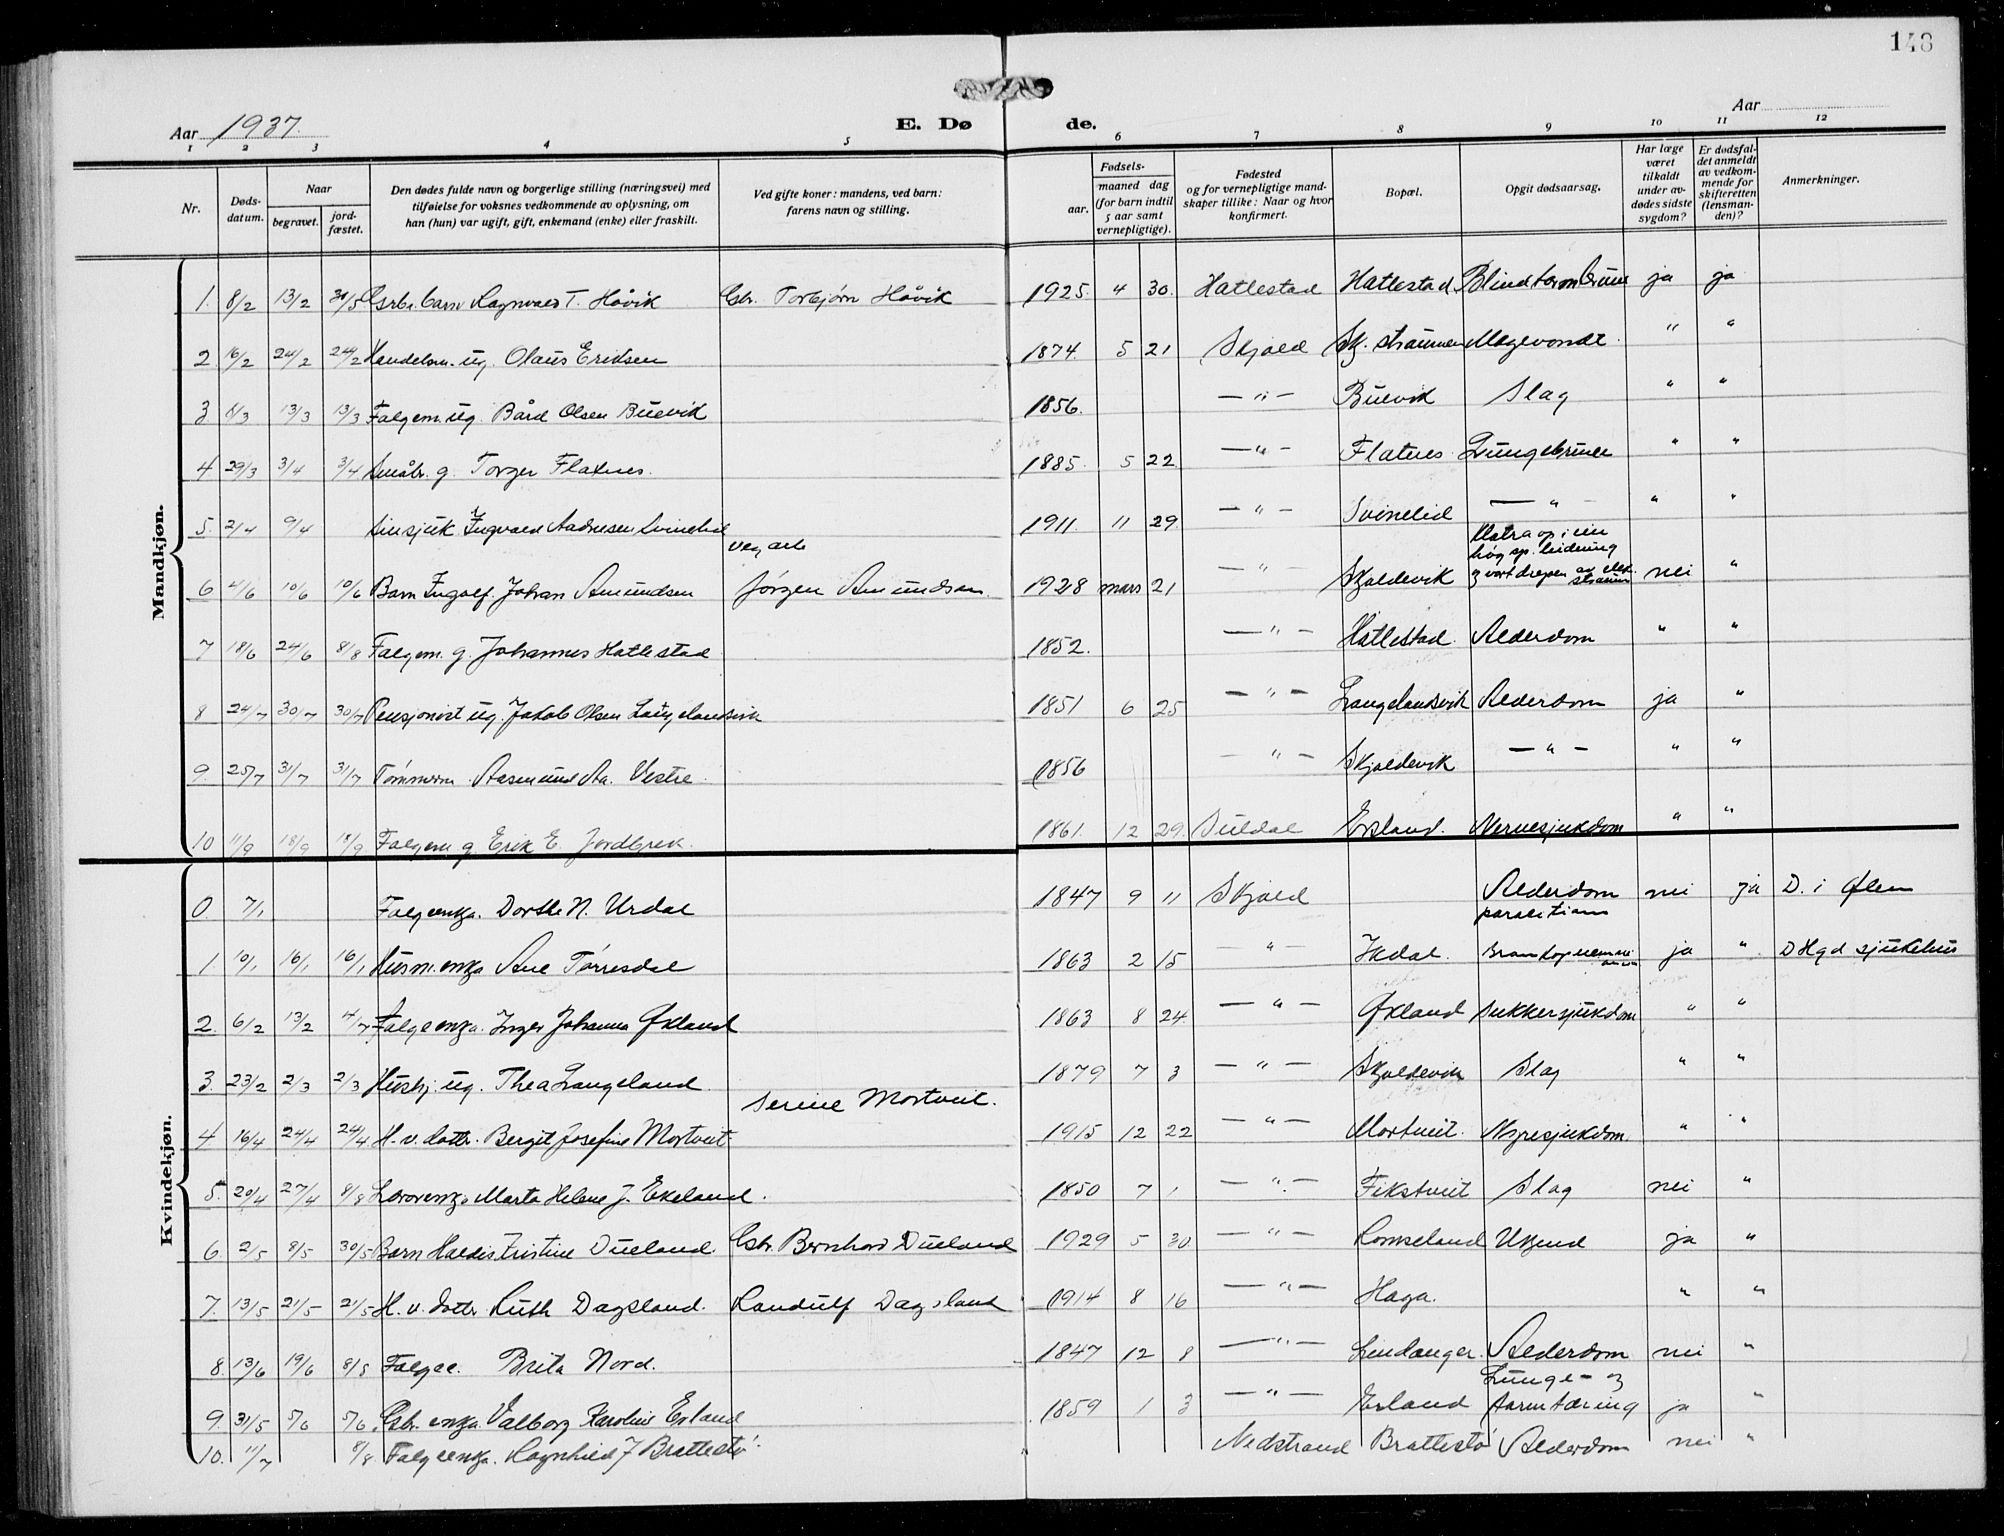 148
Aar 1937.
E. Døde.
Aar
1 2 3 4 5 6 7 8 9 10 11 12
Nr.
Døds-datum.
Naar
begravet.
jord-fæstet.
Den dødes fulde navn og borgerlige stilling (næringsvei) med
tilføielse for voksnes vedkommende av oplysning, om
han (hun) var ugift, gift, enkemand (enke) eller fraskilt.
Ved gifte koner: mandens, ved barn:
farens navn og stilling.
Fødsels-
aar.
maaned dag
(for barn indtil
5 aar samt
vernepligtige).
Fødested
og for vernepligtige mand-
skaper tillike: Naar og hvor
konfirmert.
Bopæl.
Opgit dødsaarsag.
Har læge
været
tilkaldt
under av-
dødes sidste
sygdom?
Er dødsfal-
det anmeldt
av vedkom-
mende for
skifteretten
(lensman-
den)?
Anmerkninger.
Mandkjøn.
1. 8/2 13/2 30/5 Gsbr. barn Ragnvald T. Håvik Gbr. Torbjørn Håvik 1925. 4 30. Hatlestad Hatlestad ja ja
2 16/2 24/2 24/2 Handelsm. ug. Olaus Eriksen 1874. 5 21 Skjold Sk. straumen Magevondt. " "
3 8/3 13/3 13/3 Falgem. ug. Bård Olsen Buevik 1856. — " — Buevik Slag " "
4 29/3 3/4 3/4 Småbr. g. Torger Flatnes. 1885. 5 22 — " — Flatnes Lungebrune " "
5. 2/4 9/4 Sinsjuk Ingvald Aadnesen Svinelid 1911. 11 29. — " — Svinelid — " — " "
veg arb
Klatra op i ein
høg sp. leidning
6 4/6 10/6 10/6 Barn Ingolf Johan Amundsen Jörgen Amundsen. 1928 mars 21 — " — Skjoldevik og vart drepen av elek. straum nei "
7 18/6 24/6 8/8 Falgem. g. Johannes Hatlestad 1852. — " — Hatlestad. Alderdom " "
8 24/7 30/7 30/7 Pensjonist ug. Jakob Olsen Langelandsvik 1851 6 25 — " — Langelandsvik Alderdom ja "
9. 25/7 31/7 31/7 Tømmerm. Aasmund Aa. Vestre. 1856 — " — Skjoldevik — " — " "
10 11/9 18/9 18/9 Falgem g. Erik E. Jordbrek. 1861. 12 29. Suldal Erland. Nervesjukdom " "
Kvindekjøn.
0 7/1 Falgeenkja. Dorthe N. Urdal 1847 9 11 Skjold Alderdom nei ja D. i Ølen
1 10/1 16/1 16/1 Husm.enkja Ane Tørresdal 1863 2 15 — " — Isdal. ja " D Hgd sjukehus
2. 6/2 13/2 Falgeenkja. Inger Johanna Økland 1863 8 24. — " — Økland Sukkersjukdom " "
3. 23/2 2/3 2/3 Hushj. ug. Thea Langeland 1879 7 3 — " — Skjoldevik Slag " "
Serine Mortveit.
4 16/4 24/4 24/4 H. v. dotter. Bergit Josefine Mortveit 1915 12 22 — " — Mortveit. Nyresjukdom " "
5. 20/4 27/4 8/8 Marta Helene J. Ekeland. 1850 7 1 — " — Fikstveit Slag nei "
6. 2/5 8/5 30/5 Barn Haldis Kristine Dueland. Gbr. Bernhard Dueland 1929 5 30 — " — Romseland Ukjend ja "
7. 13/5 21/5 21/5 H. v. dotter Ruth Dagsland. Randulf Dagsland 1914 8 16 — " — Haga. " "
8. 13/6 19/6 8/8 Falgee. Brita Nord. 1847 12 8 — " — Lindanger. Alderdom nei "
Lunge- og
9. 31/5 5/6 5/6 Gbr. enkja. Valborg Karoline Erland 1859 1 3 — " — Erland tarmtæring ja "
10. 11/7 8/8 Falgeenkja. Ragnhild J Brattestø. Nedstrand Brattestø Alderdom nei "